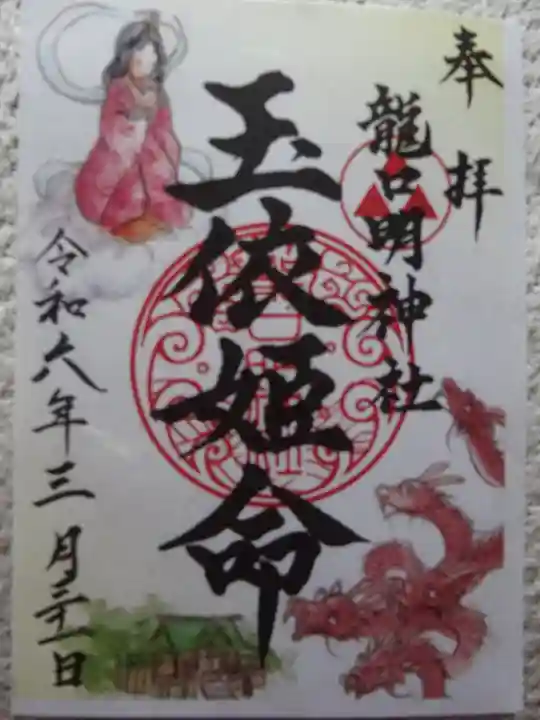 奉拝
龍口明神社
玉依姫命
令和六年三月三十一日